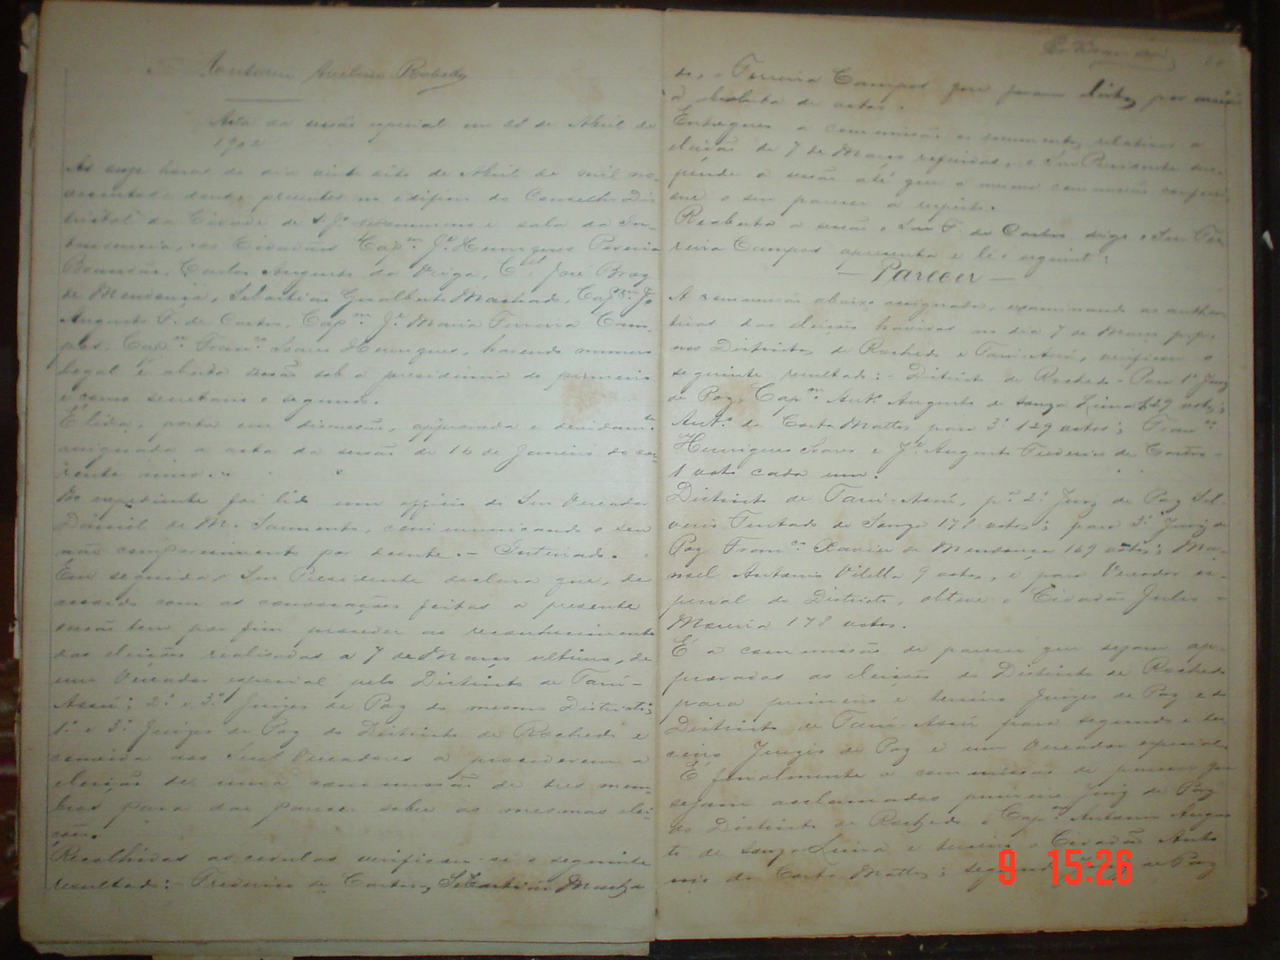 Acta da sessão especial em 28 de Abril de
1902
As onze horas do dia vinte oito de Abril de mil no-
vecentos e dous, presentes no edificio do Conselho Dis-
trictal da Cidade de S. Jº Nepomuceno e sala da In-
tendencia, os Cidadãos Capm. Jº Henriques Pereira
Brandão, Carlos Augusto da Veiga, Cel José Braz
de Mendonça, Sebastião Gualberto Machado, Capm. Jº
Augusto F. de Castro, Capm. Jé Maria Ferreira Cam-
pos, Capm. Franco Soares Henriques, havendo numero
legal é aberta sessão sob a presidencia do primeiro
e como secretario o segundo.
É lida, posta em discussão, approvada e devidamte
assignada a acta da sessão de 16 de Janeiro do cor-
rente anno.
No expediente foi lido um officio do Snr Vereador
Daniel de M. Sarmento, communicando o seu
não comparecimento por doente. - Inteirado.
Em seguida o Snr Presidente declara que, de
accordo com as convocações feitas a presente
sessão tem por fim proceder ao reconhecimento
das eleições realisadas a 7 de Março ultimo, de
um Vereador especial pelo Districto de Tarú-
Assú; 2º e 3º Juizes de Paz do mesmo Districto;
1º e 3º Juizes de Paz do Districto de Rochedo e
convida aos Snrs Vereadores a procederem a
eleição de uma commissão de tres mem-
bros para dar parecer sobre as mesmas elei-
ções.
Recolhidas as cedulas verificou-se o seguinte
resultado: - Frederico de Castro, Sebastião Macha-
do, e Ferreira Campos que foram eleitos por maio-
Entregues a commissão os documentos relativos a
eleição de 7 de Março referidas, o Snr Presidente sus-
pende a sessão até que a mesma commissão
o seu parecer a respeito.
Reaberta a sessão o Snr F. de Castro digo o Snr Fer-
reira Campos apresenta e lê o seguinte:
- Parecer -
A commissão abaixo assignada, examinando as authen-
ticas das eleições havidas no dia 7 de Março p.p.
nos Districtos de Rochedo e Tarú-Assú, verificou o
seguinte resultado: - Districto de Rochedo - Para 1º Juiz
de Paz, Capm. Anto. Augusto de Souza Lima 129 votos;
Anto. da Costa Mattos para 3º 129 votos; Franco
Henriques Soares e Jé Augusto Frederico de Castro -
1 voto cada um.
Districto de Tarú-Assú, pa. 2º Juiz de Paz Sil-
verio Furtado de Souza 178 votos; para 3º Juiz de
Paz Franco Xavier de Mendonça 169 votos; Ma-
noel Antonio Vilella 9 votos, e para Vereador es-
pecial do Districto, obteve o Cidadão Julio
Moreira 178 votos.
É a commissão de parecer que sejam ap-
provadas as eleições do Districto de Rochedo
para primeiro e terceiro Juizes de Paz e do
Districto de Tarú-Assú para segundo e ter-
ceiro Juizes de Paz e um Vereador especial.
É finalmente a commissão de parecer que
sejam acclamados primeiro Juiz de Paz
do Districto de Rochedo o Capm. Antonio Augus-
to de Souza Lima e terceiro o Cidadão Anto-
nio da Costa Mattos; segundo Juiz de Paz
9 15:26